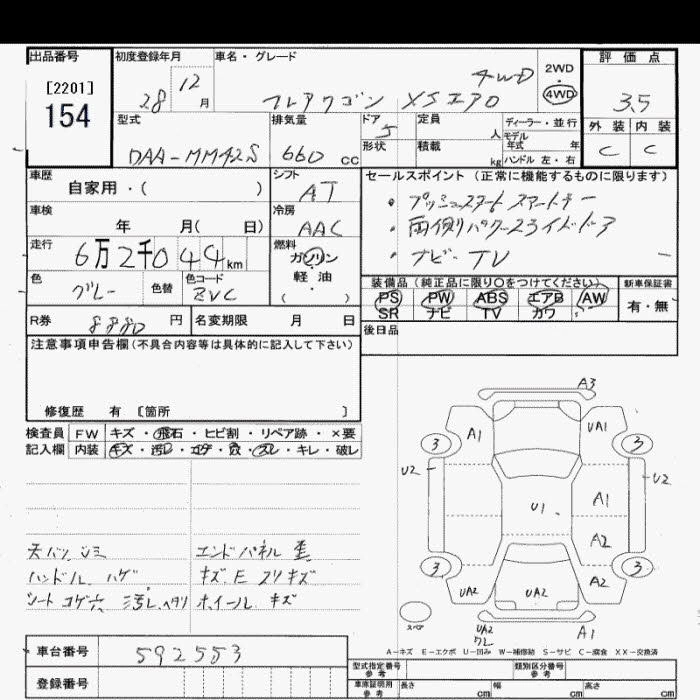 出品番号 初度登録年月 車名・グレード 評価点
[2201] 154
28 12月
フレアワゴン XSエアロ 4WD
2WD
4WD
3.5
型式 排気量 ドア 定員 人 ディーラー・並行
DAA-MM42S 660 cc 5
形状 積載 kg モデル年式 年
ハンドル 左・右
外装 内装
C C
車歴 自家用・( )
シフト AT
セールスポイント (正常に機能するものに限ります)
・プッシュスタート スマートキー
・両側パワースライドドア
・ナビ・TV
車検 年 月( 日)
冷房 AAC
走行 6万2千044km
燃料 ガソリン・軽油 ( )
色 グレー 色替 色コード ZVC
装備品 (純正品に限り○をつけてください) 新車保証書
PS PW ABS エアB AW 有・無
SR ナビ TV カワ
R券 8880円 名変期限 月 日
後日品
注意事項申告欄 (不具合内容等は具体的に記入して下さい)
修復歴 有 [箇所 ]
検査員 FW キズ・飛石・ヒビ割・リペア跡・×要
記入欄 内装 キズ・汚レ・コゲ・穴・スレ・キレ・破レ
天バリ シミ エンドパネル 歪
ハンドル ハゲ キズ、E スリキズ
シート コゲ穴 汚レ、ヘタリ ホイール キズ
A3
A1 UA1
3 3
U2 U2
U1
A1
A2
3 3
UA2 UA2 A2
スペア UA2 A1
A-キズ E-エクボ U-凹み W-補修跡 S-サビ C-腐食 XX-交換済
車台番号 592553
登録番号
型式指定番号 参考 類別区分番号 参考
車庫証明用 参考 長さ cm 幅 cm 高さ cm